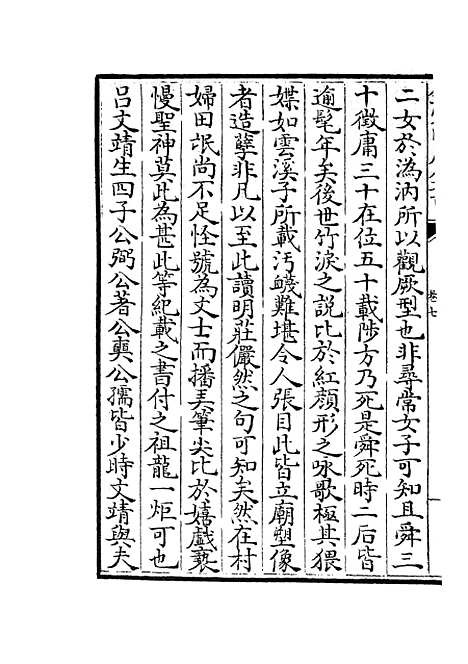 二女於溈汭所以觀厥型也非尋常女子可知且舜三
十徵庸三十在位五十載陟方乃死是舜死時二后皆
逾髦年矣後世竹淚之說比於紅顏形之咏歌極其猥
媟如雲溪子所載汚衊難堪令人張目此皆立廟塑像
者造孽非凡以至此讀明莊儼然之句可知矣然在村
婦田氓尚不足怪號為文士而播弄筆尖比於嬉戲褻
慢聖神莫此為甚此等紀載之書付之祖龍一炬可也
呂文靖生四子公弼公著公奭公孺皆少時文靖與夫
卷七